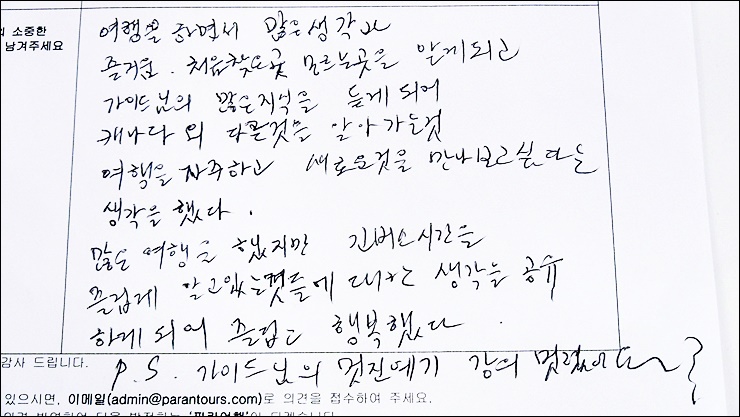 의 소중한
남겨주세요
여행을 하면서 많은생각과
즐거움. 처음찾는곳 모르는곳을 알게되고
가이드님의 많은지식을 듣게 되어
캐나다의 다른것을 알아가는것
여행을 자주하고 새로운것을 만나보고싶다는
생각을 했다.
많은 여행을 했지만 긴버스시간을
즐겁게 알고있는것들에 대한 생각을 공유
하게 되어 즐겁고 행복했다.
감사 드립니다.
P.S. 가이드님의 멋진얘기 강의 멋졌어요~
있으시면, 이메일(admin@parantours.com)로 의견을 접수하여 주세요.